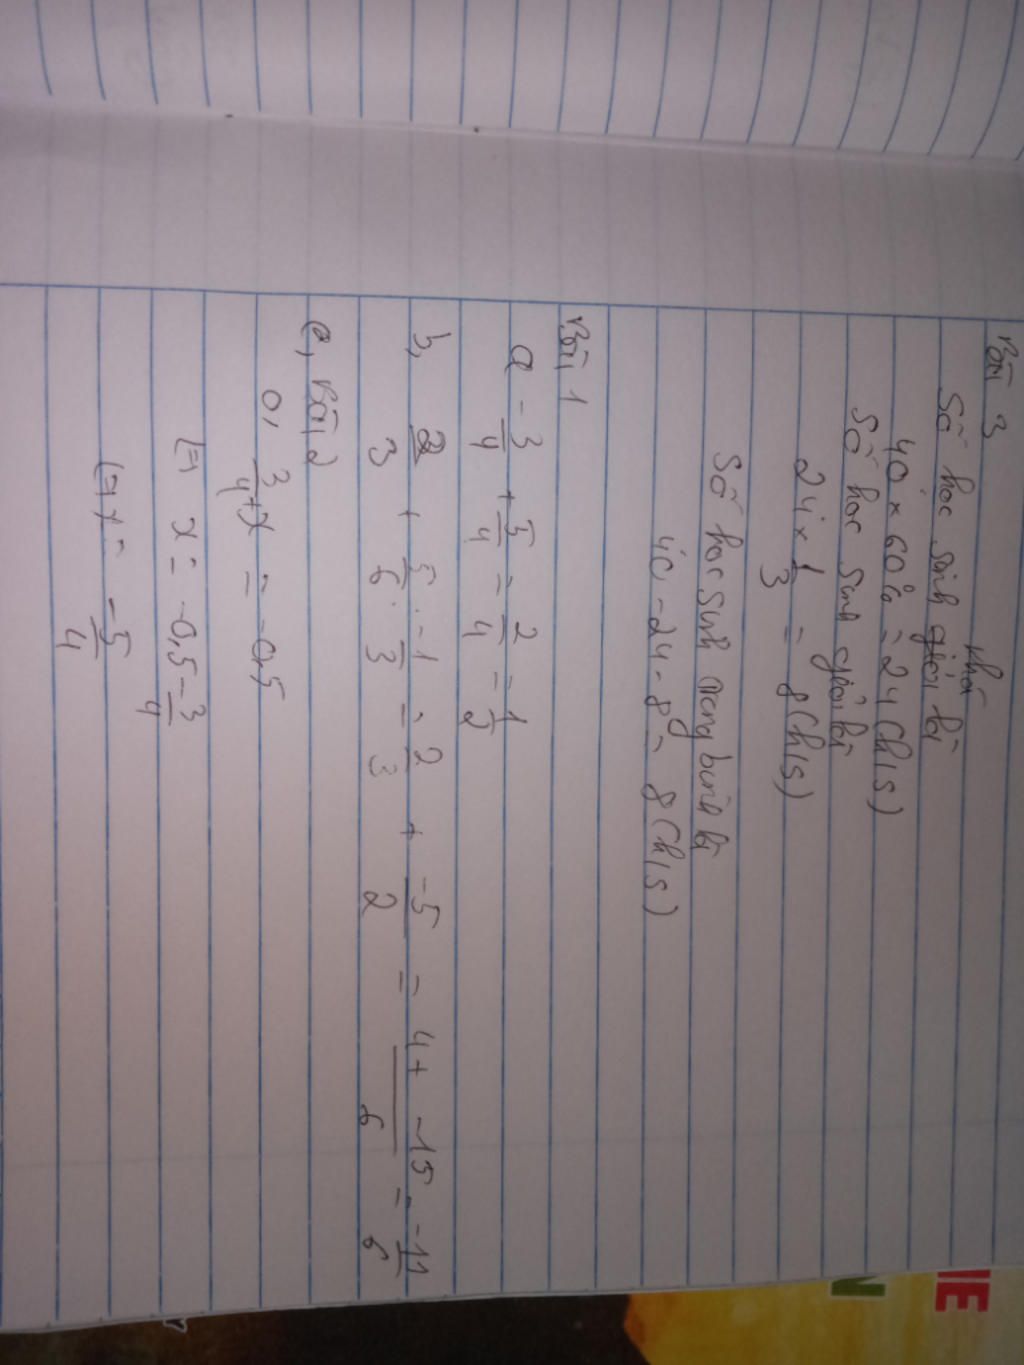 Bài 3
khá
Số học sinh giỏi là
40 × 60% = 24 (h/s)
Số học sinh giỏi là
24 × 1/3 = 8 (h/s)
Số học sinh trung bình là
40 - 24 - 8 = 8 (h/s)
Bài 1
a -3/4 + 5/4 = 2/4 = 1/2
b, 2/3 + 5/6 : -1/3 = 2/3 + -5/2 = 4 + -15/6 = -11/6
Bài 2
a, 3/4 + x = -0,5
x = -0,5 - 3/4
x = -5/4
NE
N